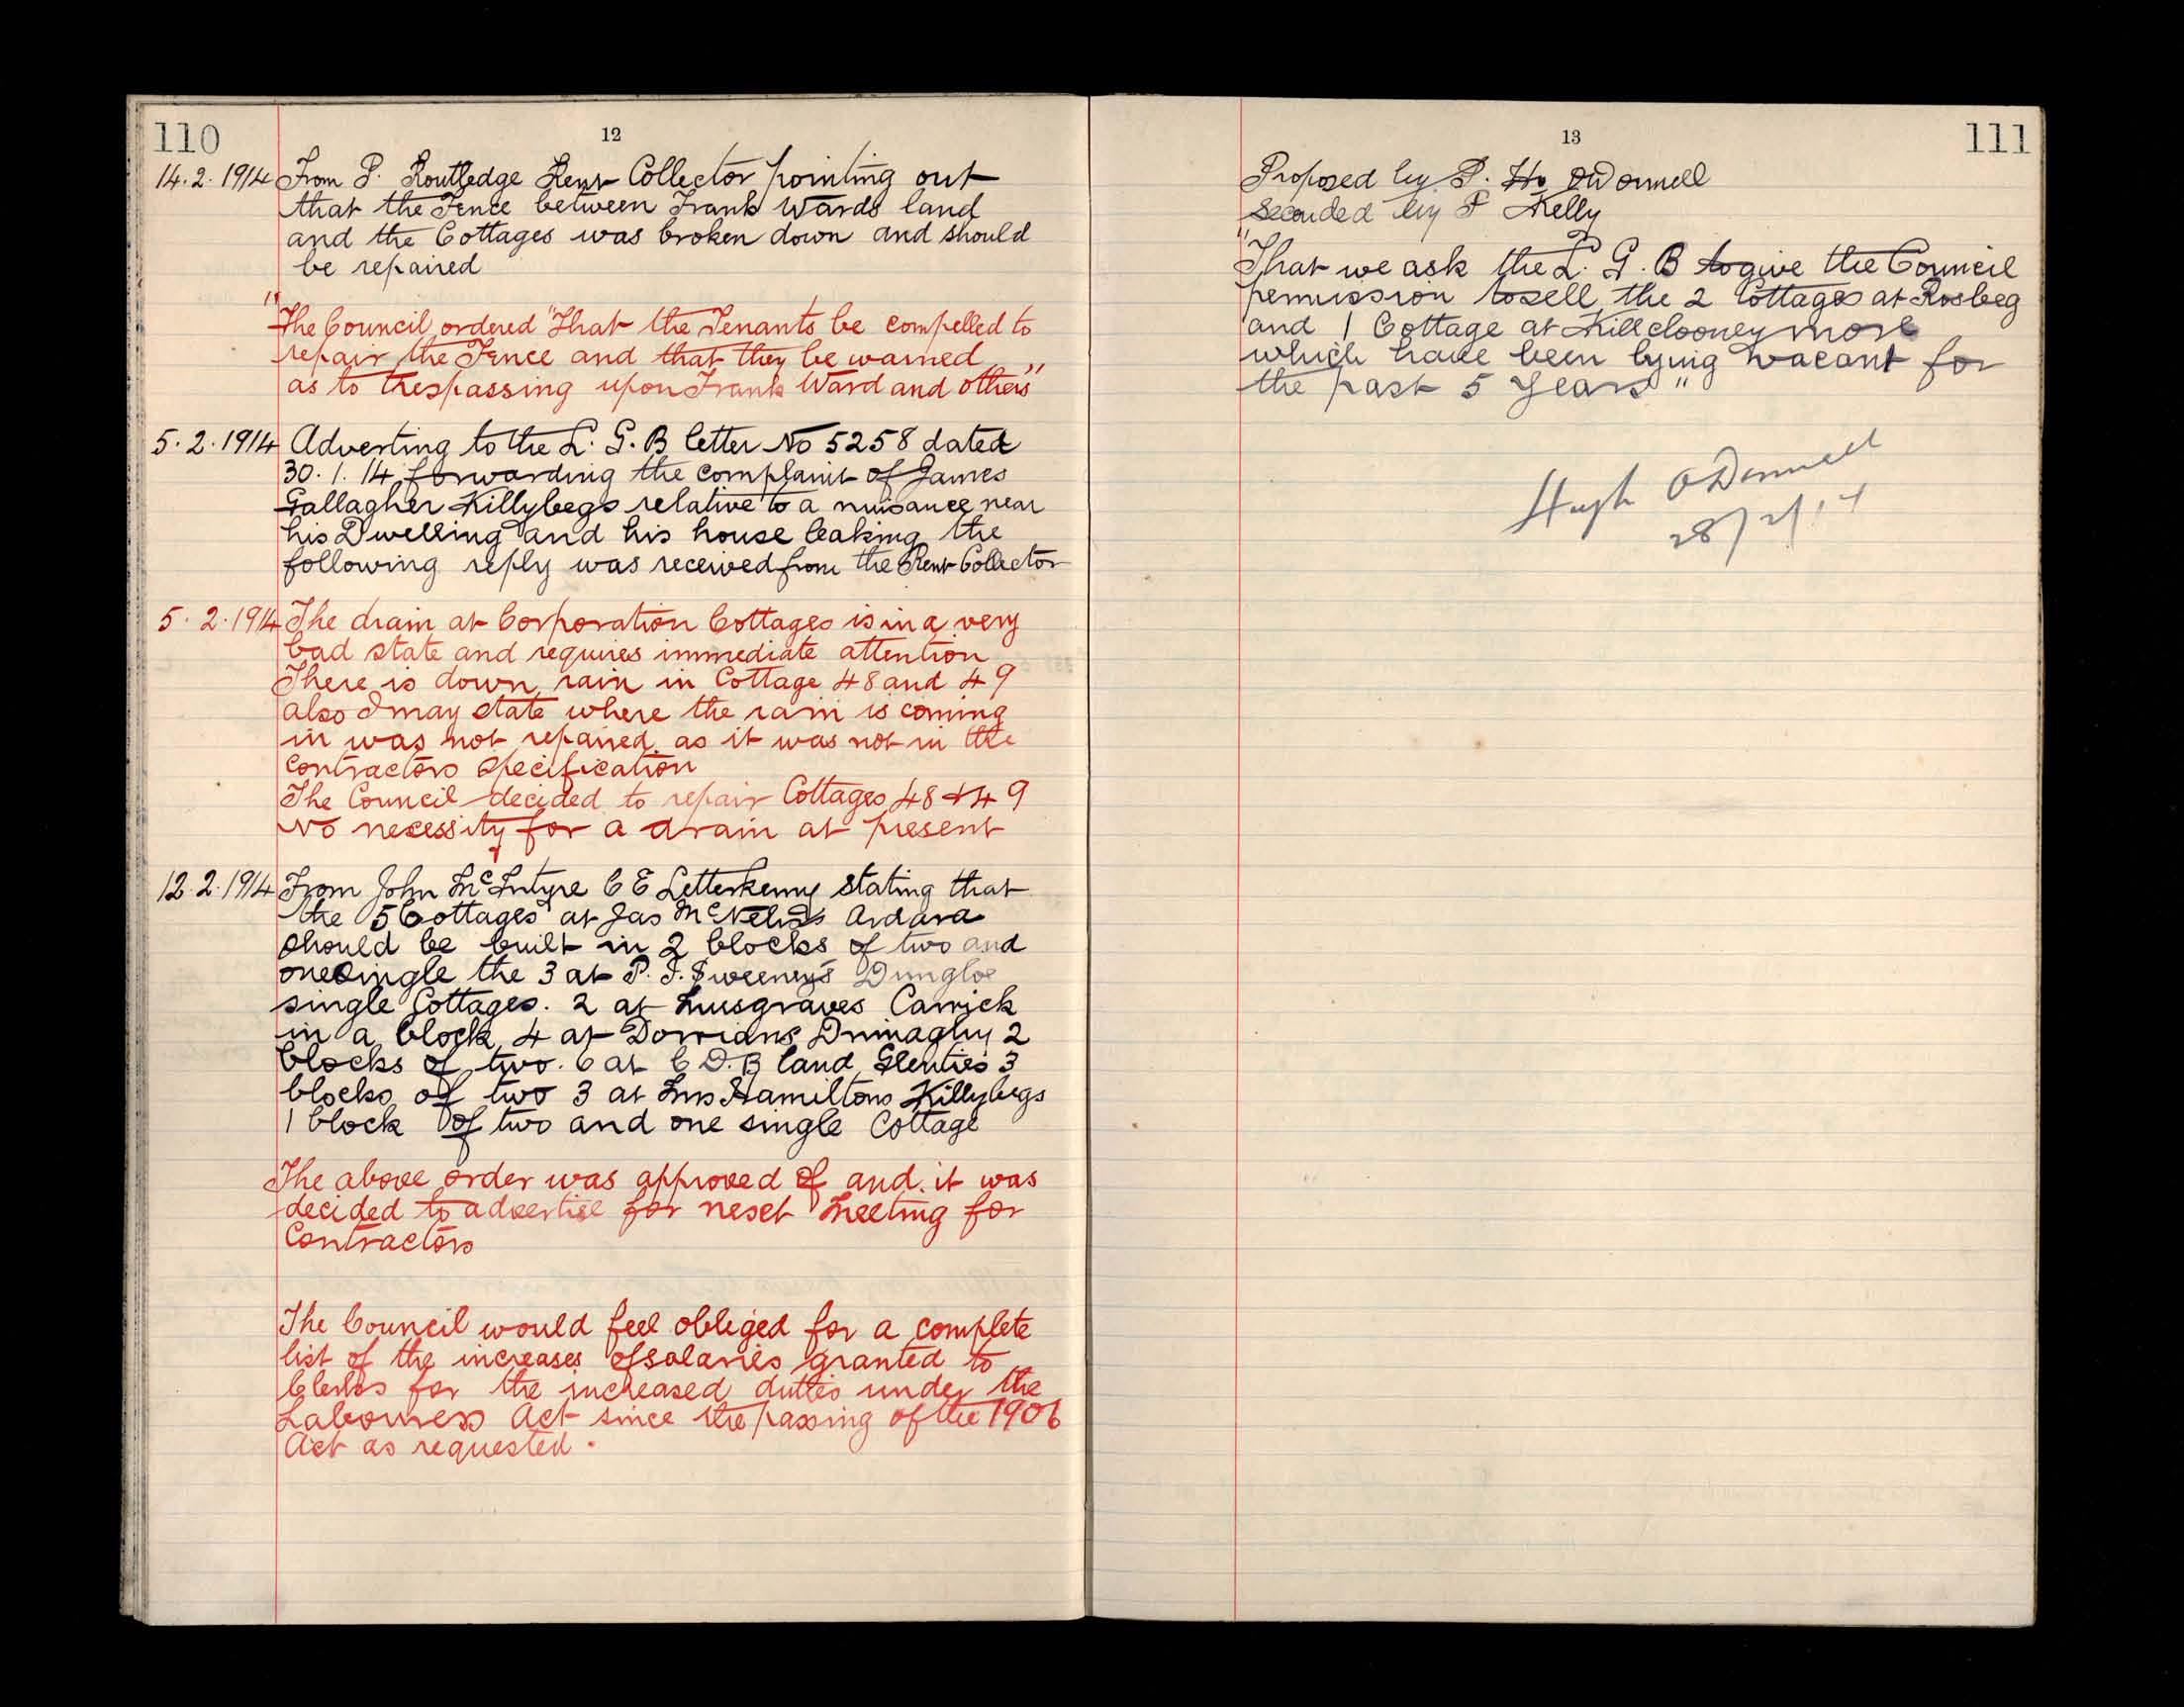 110
12
14.2.1914 From P. Routledge Rent Collector pointing out
that the Fence between Frank Wards land
and the Cottages was broken down and should
be repaired
"The Council ordered "That the Tenants be compelled to
repair the Fence and that they be warned
as to trespassing upon Frank Ward and others"
5.2.1914 Adverting to the L.G.B letter No 5258 dated
30.1.14 forwarding the complaint of James
Gallagher Killybegs relative to a nuisance near
his Dwelling and his house leaking the
following reply was received from the Rent Collector
5.2.1914 The drain at Corporation Cottages is in a very
bad state and requires immediate attention
There is down rain in Cottage 48 and 49
also I may state where the rain is coming
in was not repaired as it was not in the
Contractors Specification
The Council decided to repair Cottages 48 & 49
No necessity for a drain at present
12.2.1914 From John McIntyre C E Letterkenny stating that
the 5 Cottages at Jas McNelis's Ardara
should be built in 2 blocks of two and
one single the 3 at P. J. Sweeney's Dungloe
single Cottages. 2 at Musgraves Carrick
in a block 4 at Dorrians Drimaghy 2
blocks of two. 6 at C D.B land Glenties 3
blocks of two 3 at Mrs Hamiltons Killybegs
1 block of two and one single Cottage
The above order was approved of and it was
decided to advertise for next Meeting for
Contractors
The Council would feel obliged for a complete
list of the increases of salaries granted to
Clerks for the increased duties under the
Labourers Act since the passing of the 1906
Act as requested.
13
111
Proposed by P. H. O'Donnell
Seconded by P Kelly
"That we ask the L. G. B to give the Council
permission to sell the 2 Cottages at Rosbeg
and 1 Cottage at Killclooney more
which have been lying vacant for
the past 5 Years"
Hugh O'Donnell
28/2/14